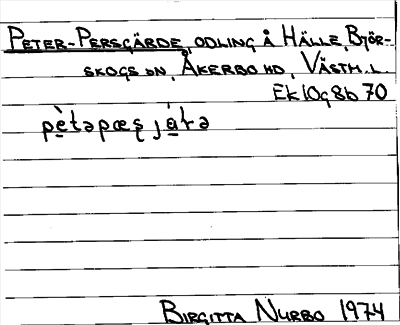 PETER-PERSGÄRDE, ODLING Å HÄLLE, BJÖR-
SKOGS SN, ÅKERBO HD, VÄSTM. L.
EK 10g 8b 70
pè̱təpæȿ já̱ƚə
BIRGITTA NURBO 1974